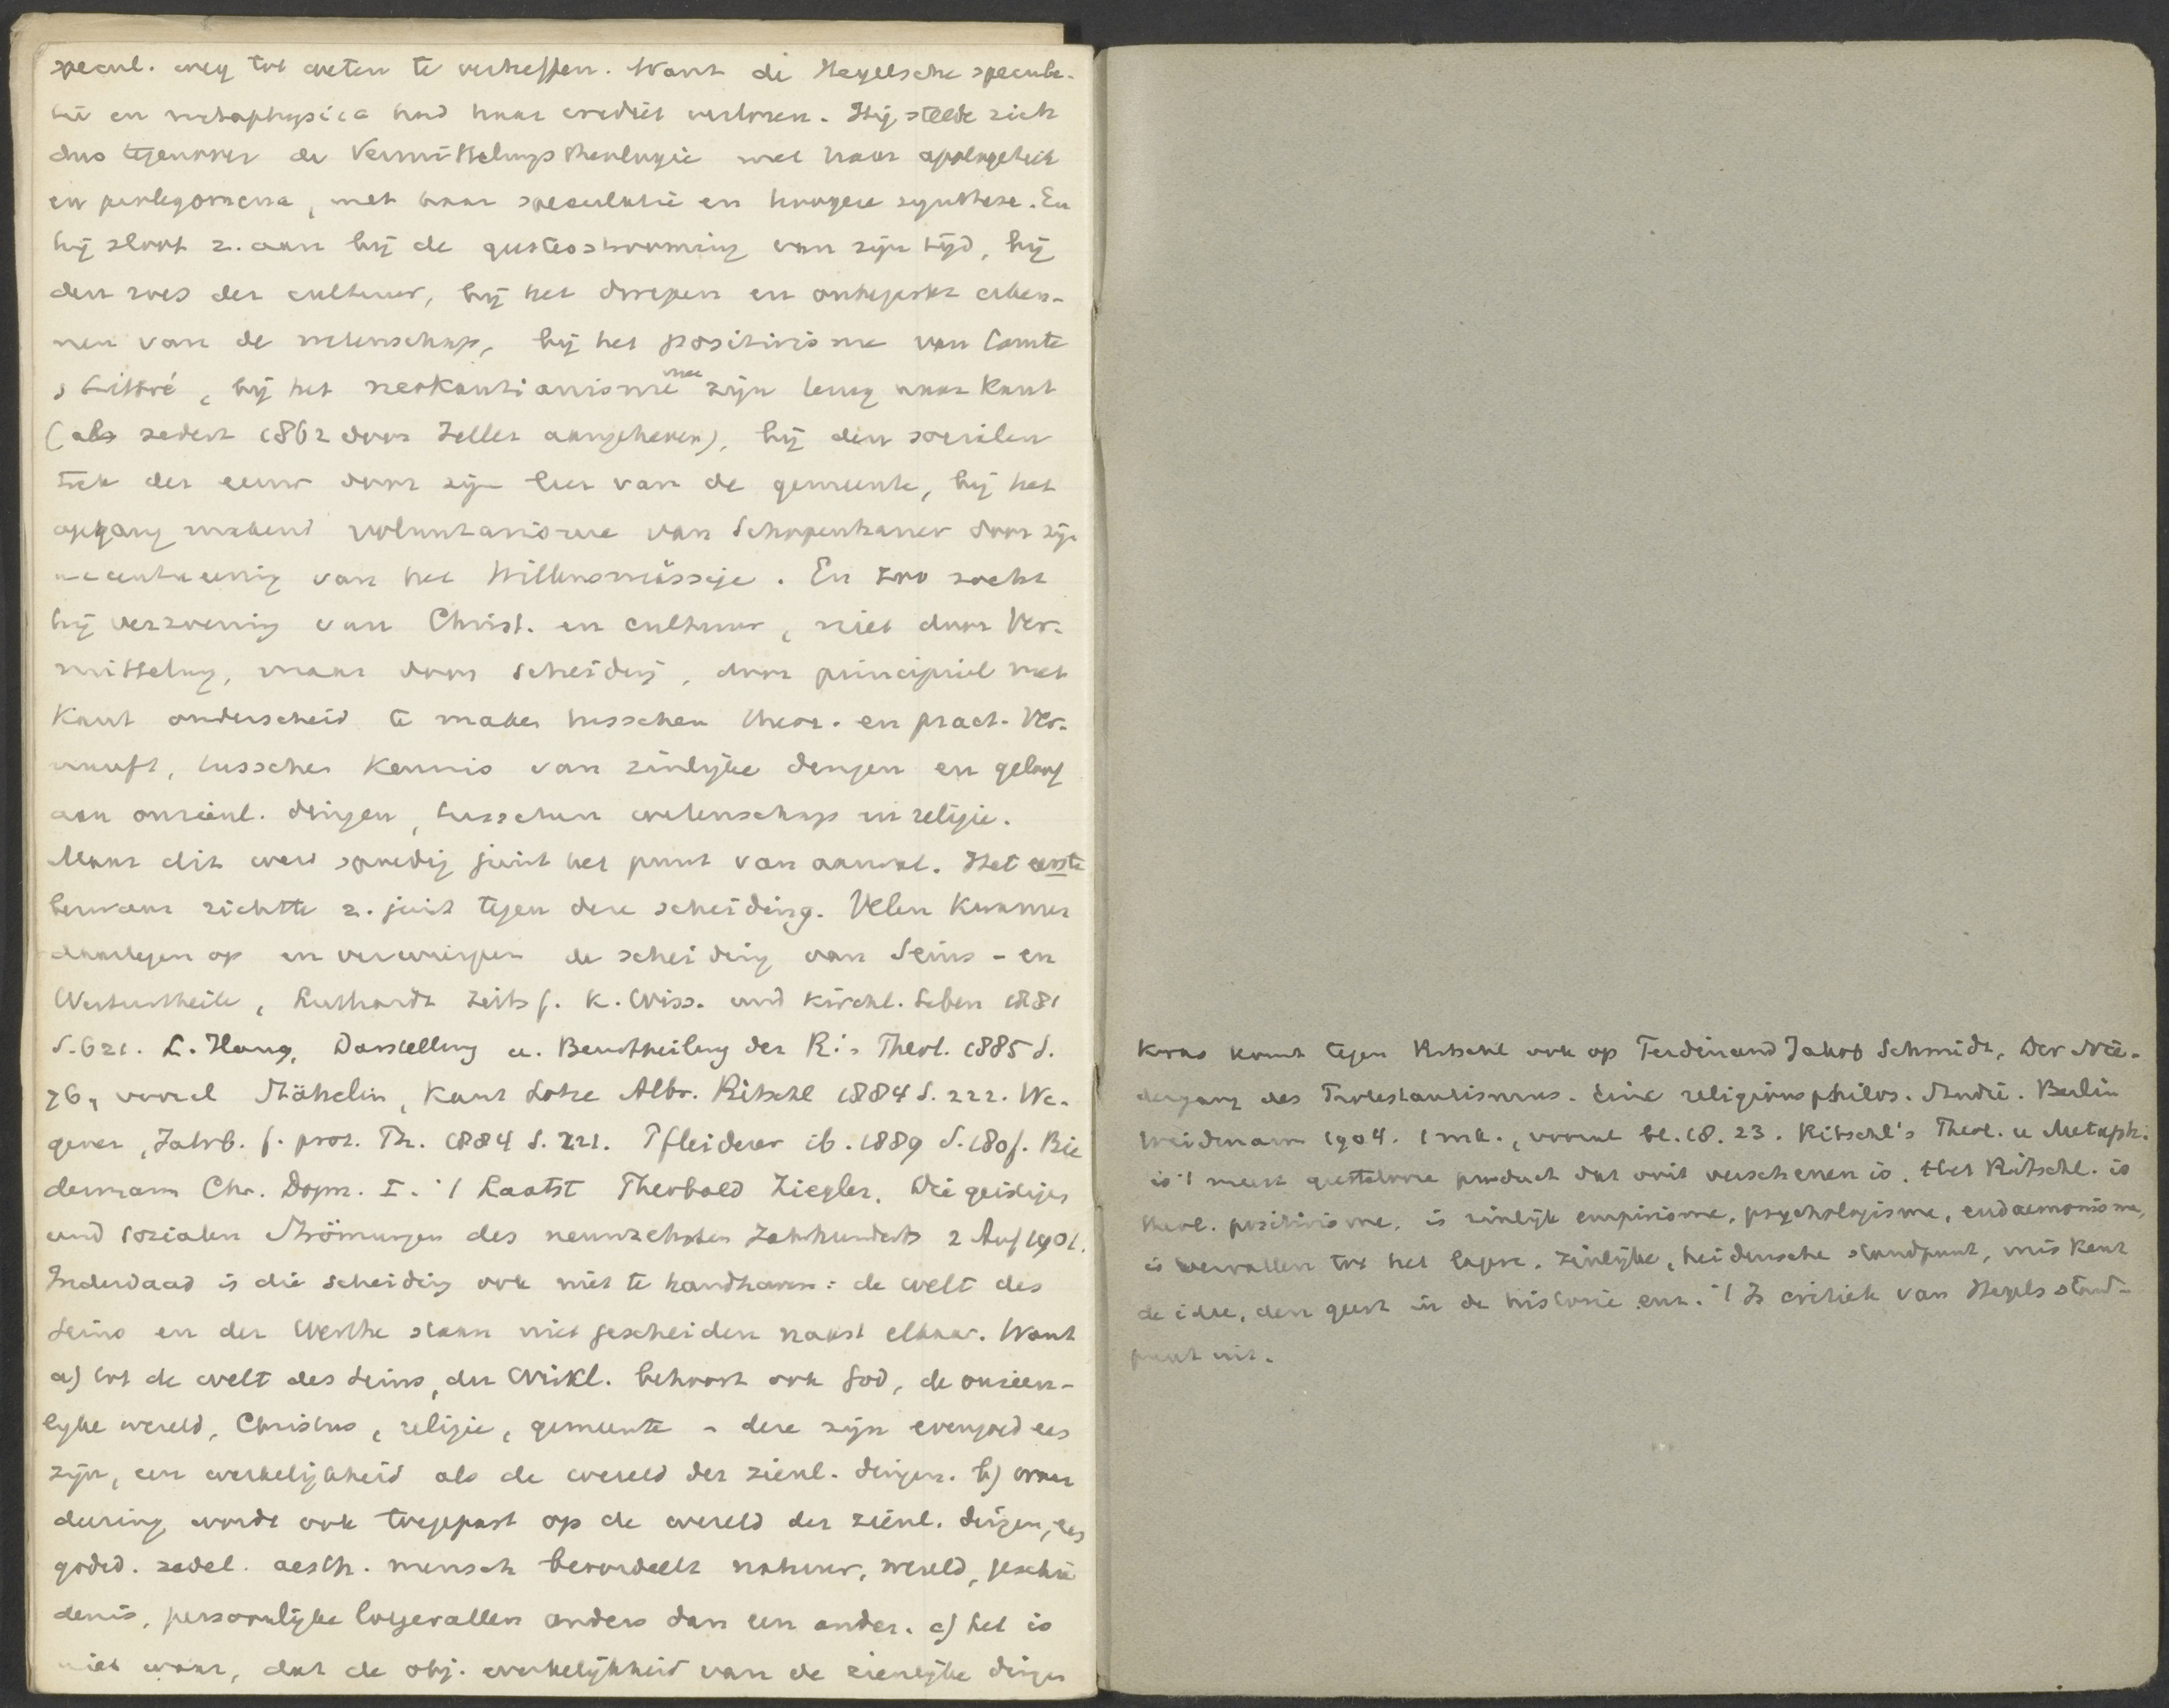 specul. weg tot weten te verheffen. Want de Hegelsche specula-
tie en metaphysica had haar crediet verloren. Hij stelde zich
dus tegenover de Vermittelungstheologie met haar apologetiek
en prolegomena, met haar speculatie en hoogere synthese. En
hij sloot z. aan bij de geestesstrooming van zijn tijd, bij
den roes der cultuur, bij het dwepen en onbeperkt erken-
nen van de wetenschap, bij het positivisme van Comte
, Littré, bij het neokantianisme met zijn terug naar Kant
(als sedert 1862 door Zeller aangeheven), bij den socialen
trek der eeuw door zijn leer van de gemeente, bij het
opgang makend voluntarisme van Schopenhauer door zijn
accentueering van het Willensmässige. En zoo zocht
hij verzoening van Christ. en cultuur, niet door Ver-
mittelung, maar door scheiding, door principieel met
Kant onderscheid te maken tusschen theor. en pract. Ver-
nunft, tusschen kennis van zinlijke dingen en geloof
aan onzienl. dingen, tusschen wetenschap en religie.
Maar dit werd spoedig juist het punt van aanval. Het eerste
bezwaar richtte z. juist tegen deze scheiding. Velen kwamen
daartegen op en verwierpen de scheiding van Seins- en
Werturtheile, Luthardt Zeits f. k. Wiss. und kirchl. Leben 1881
S. 621. L. Haug, Darstellung u. Beurtheilung der R.'s Theol. 1885 S.
76, vooral Stähelin, Kant Lotze Albr. Ritschl 1884 S. 222. We-
gener, Jahrb. f. prot. Th. 1884 S. 221. Pfleiderer ib. 1889 S. 180f. Bie
dermann Chr. Dogm. I. 't Laatst Theobald Ziegler, Die geistigen
und sozialen Strömungen des neunzehnten Jahrhunderts 2 Aufl 1901.
Inderdaad is die scheiding ook niet te handhaven: de welt des
Seins en der Werthe staan niet gescheiden naast elkaar. Want
a) tot de welt des Seins, der Wirkl. behoort ook God, de onzien-
lijke wereld, Christus, religie, gemeente - deze zijn evengoed een
zijn, een werkelijkheid als de wereld der zienl. dingen. b) waar
deering wordt ook toegepast op de wereld der zienl. dingen, een
godsd. zedel. aesth. mensch beoordeelt natuur, wereld, geschie
denis, persoonlijke lotgevallen anders dan een ander. c) het is
niet waar, dat de obj. werkelijkheid van de zienlijke dingen
Kras komt tegen Ritschl ook op Ferdinand Jakob Schmidt, Der Nie-
dergang des Protestantismus. Eine religionsphilos. Studie. Berlin
Weidmann 1904. 1 mk., vooral bl. 18. 23. Ritschl's Theol. u Metaph.
is 't meest geestelooze product dat ooit verschenen is. Het Ritschl. is
theol. positivisme, is zinlijk empirisme, psychologisme, eudaemonisme,
is vervallen tot het lagere, zinlijke, heidensche standpunt, miskent
de idee, den geest in de historie enz. 't Is critiek van Hegels stand-
punt uit.